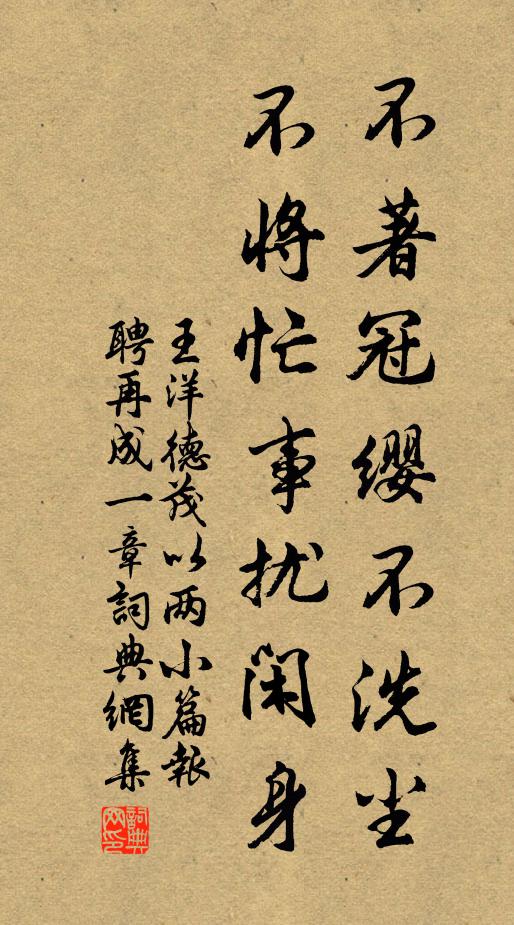 不著冠缨不洗尘
不将忙事扰闲身
王洋德茂以两小篇报
聘再成一章詞典網集
詞典网印